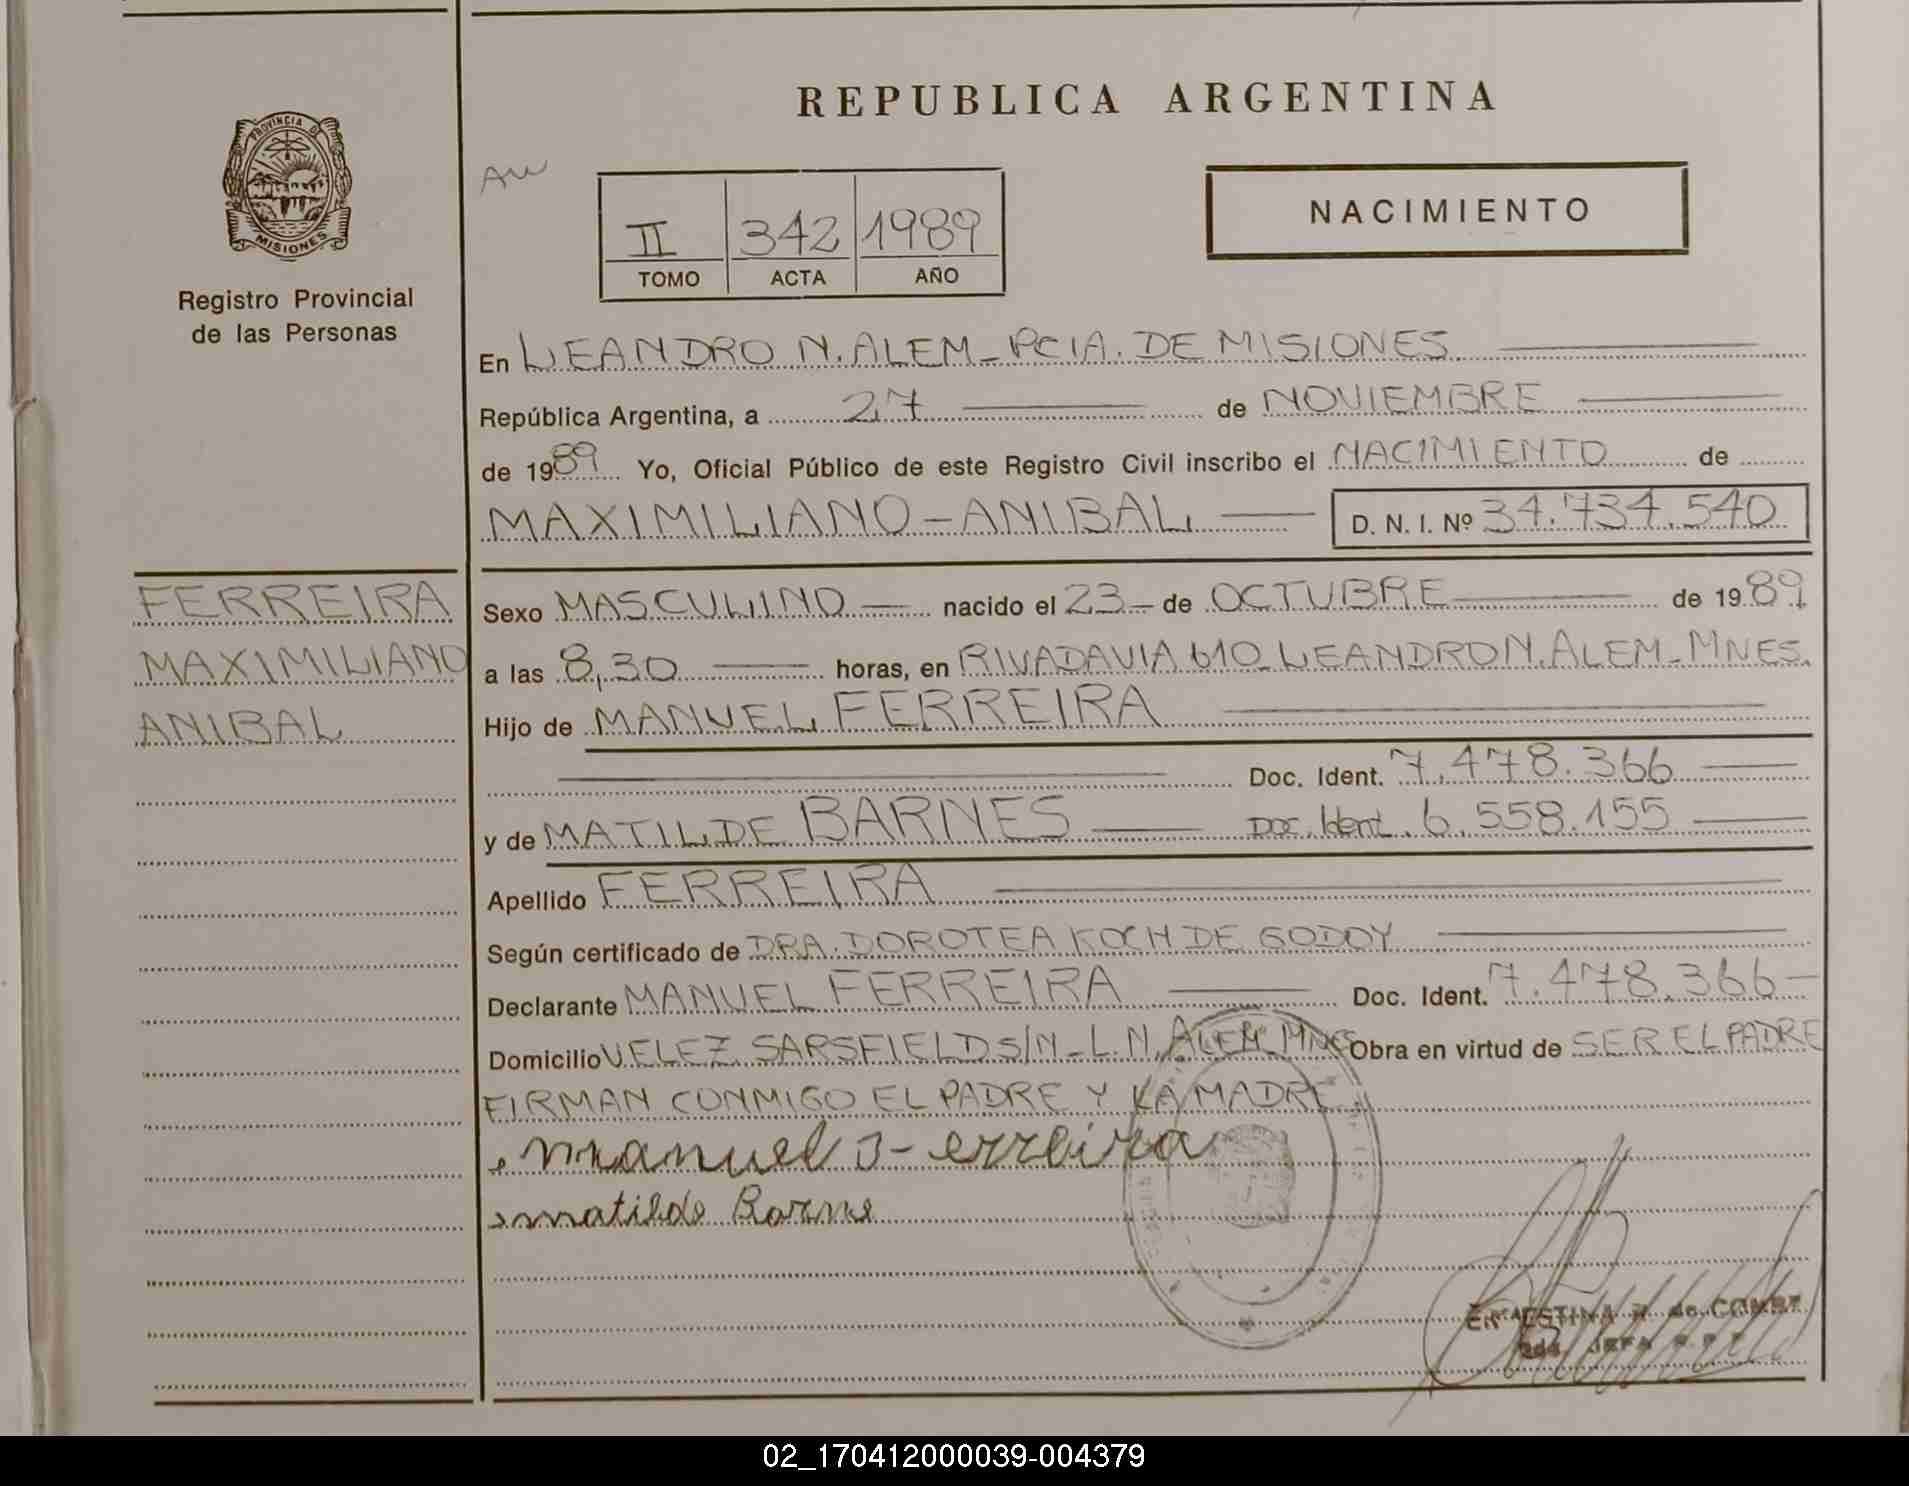 REPUBLICA ARGENTINA
PROVINCIA DE
MISIONES
Registro Provincial
de las Personas
II 342 1989
TOMO ACTA AÑO
NACIMIENTO
En LEANDRO N. ALEM - PCIA. DE MISIONES
República Argentina, a 27 de NOVIEMBRE
de 1989 Yo, Oficial Público de este Registro Civil inscribo el NACIMIENTO de
MAXIMILIANO - ANIBAL D. N. I. Nº 34.734.540
FERREIRA
MAXIMILIANO
ANIBAL
Sexo MASCULINO nacido el 23 de OCTUBRE de 1989
a las 8,30 horas, en RIVADAVIA 610 - LEANDRO N. ALEM - MNES.
Hijo de MANUEL FERREIRA
Doc. Ident. 7.478.366
y de MATILDE BARNES Doc. Ident. 6.558.155
Apellido FERREIRA
Según certificado de DRA. DOROTEA KOCH DE GODOY
Declarante MANUEL FERREIRA Doc. Ident. 7.478.366
Domicilio VELEZ SARSFIELD S/N - L.N. ALEM - MNES Obra en virtud de SER EL PADRE
FIRMAN CONMIGO EL PADRE Y LA MADRE
Manuel Ferreira
matilde Barne
ERNESTINA de
JEFA
02_170412000039-004379